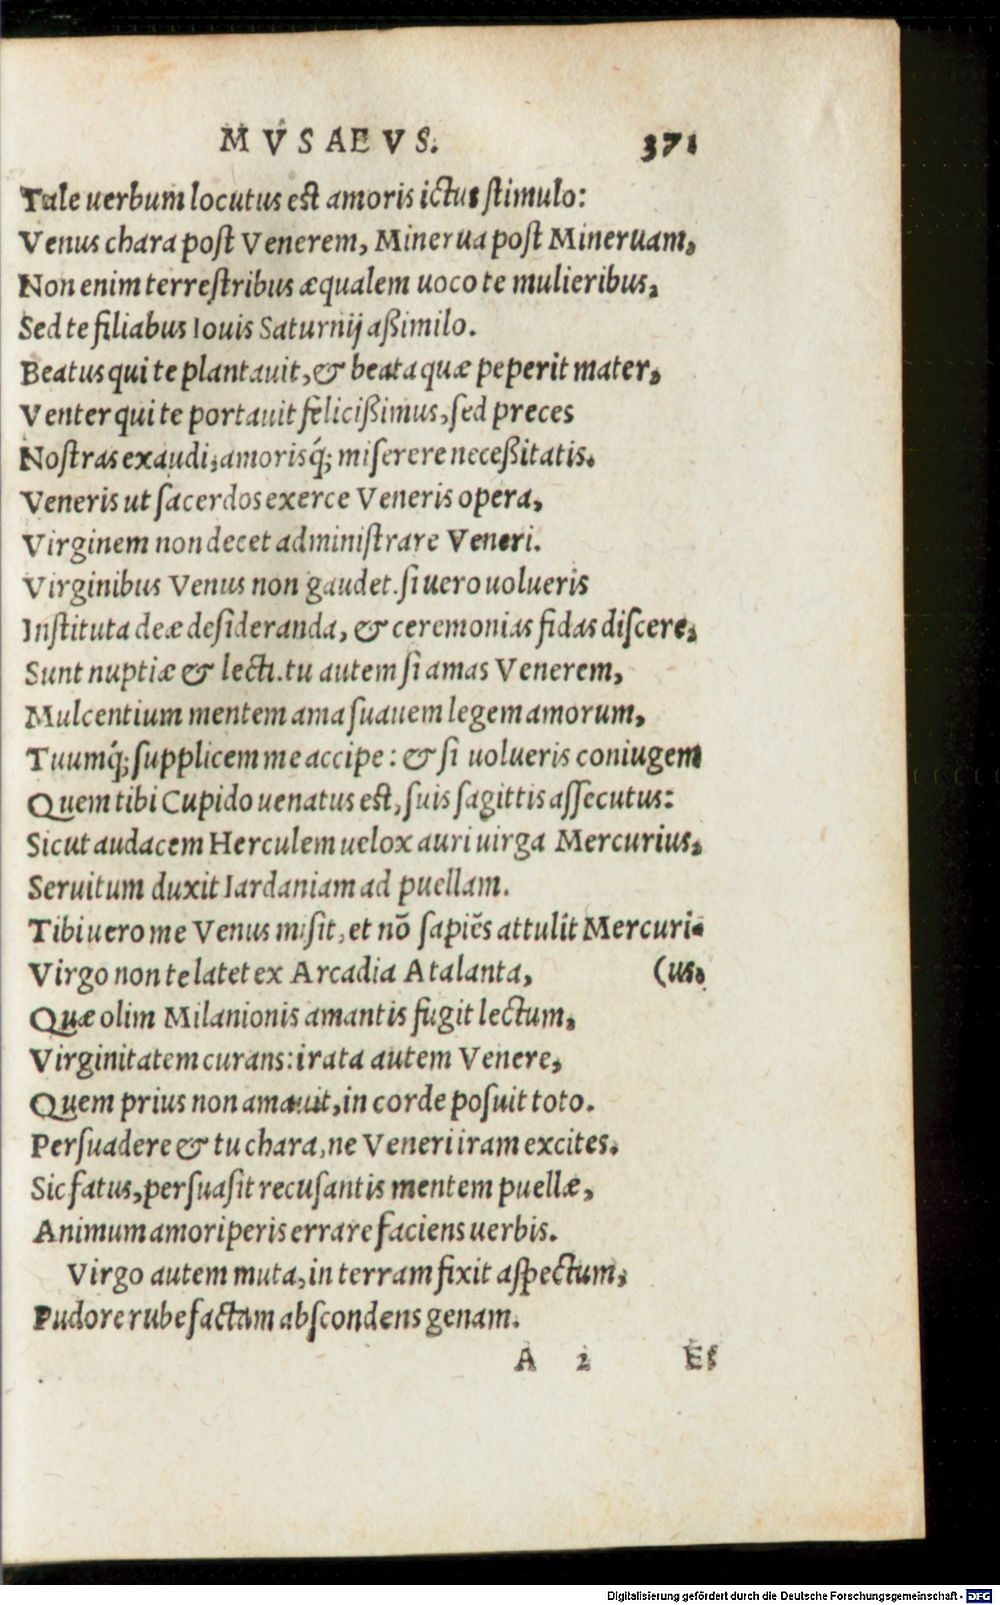 MVSAEVS. 371
Tale uerbum locutus est amoris ictus stimulo:
Venus chara post Venerem, Minerua post Mineruam,
Non enim terrestribus æqualem uoco te mulieribus,
Sed te filiabus Iouis Saturnij aßimilo.
Beatus qui te plantauit, & beata quæ peperit mater,
Venter qui te portauit felicißimus, sed preces
Nostras exaudi, amorisq́; miserere neceßitatis.
Veneris ut sacerdos exerce Veneris opera,
Virginem non decet administrare Veneri.
Virginibus Venus non gaudet. si uero uolueris
Instituta deæ desideranda, & ceremonias fidas discere,
Sunt nuptiæ & lecti. tu autem si amas Venerem,
Mulcentium mentem ama suauem legem amorum,
Tuumq́; supplicem me accipe: & si uolueris coniugem
Quem tibi Cupido uenatus est, suis sagittis assecutus:
Sicut audacem Herculem uelox auri uirga Mercurius,
Seruitum duxit Iardaniam ad puellam.
Tibi uero me Venus misit, et nō sapiēs attulit Mercuri-
Virgo non te latet ex Arcadia Atalanta, (us.
Quæ olim Milanionis amantis fugit lectum,
Virginitatem curans: irata autem Venere,
Quem prius non amauit, in corde posuit toto.
Persuadere & tu chara, ne Veneri iram excites.
Sic fatus, persuasit recusantis mentem puellæ,
Animum amoriperis errare faciens uerbis.
Virgo autem muta, in terram fixit aspectum,
Pudore rubefactam abscondens genam.
A 2 Et
Digitalisierung gefördert durch die Deutsche Forschungsgemeinschaft - DFG